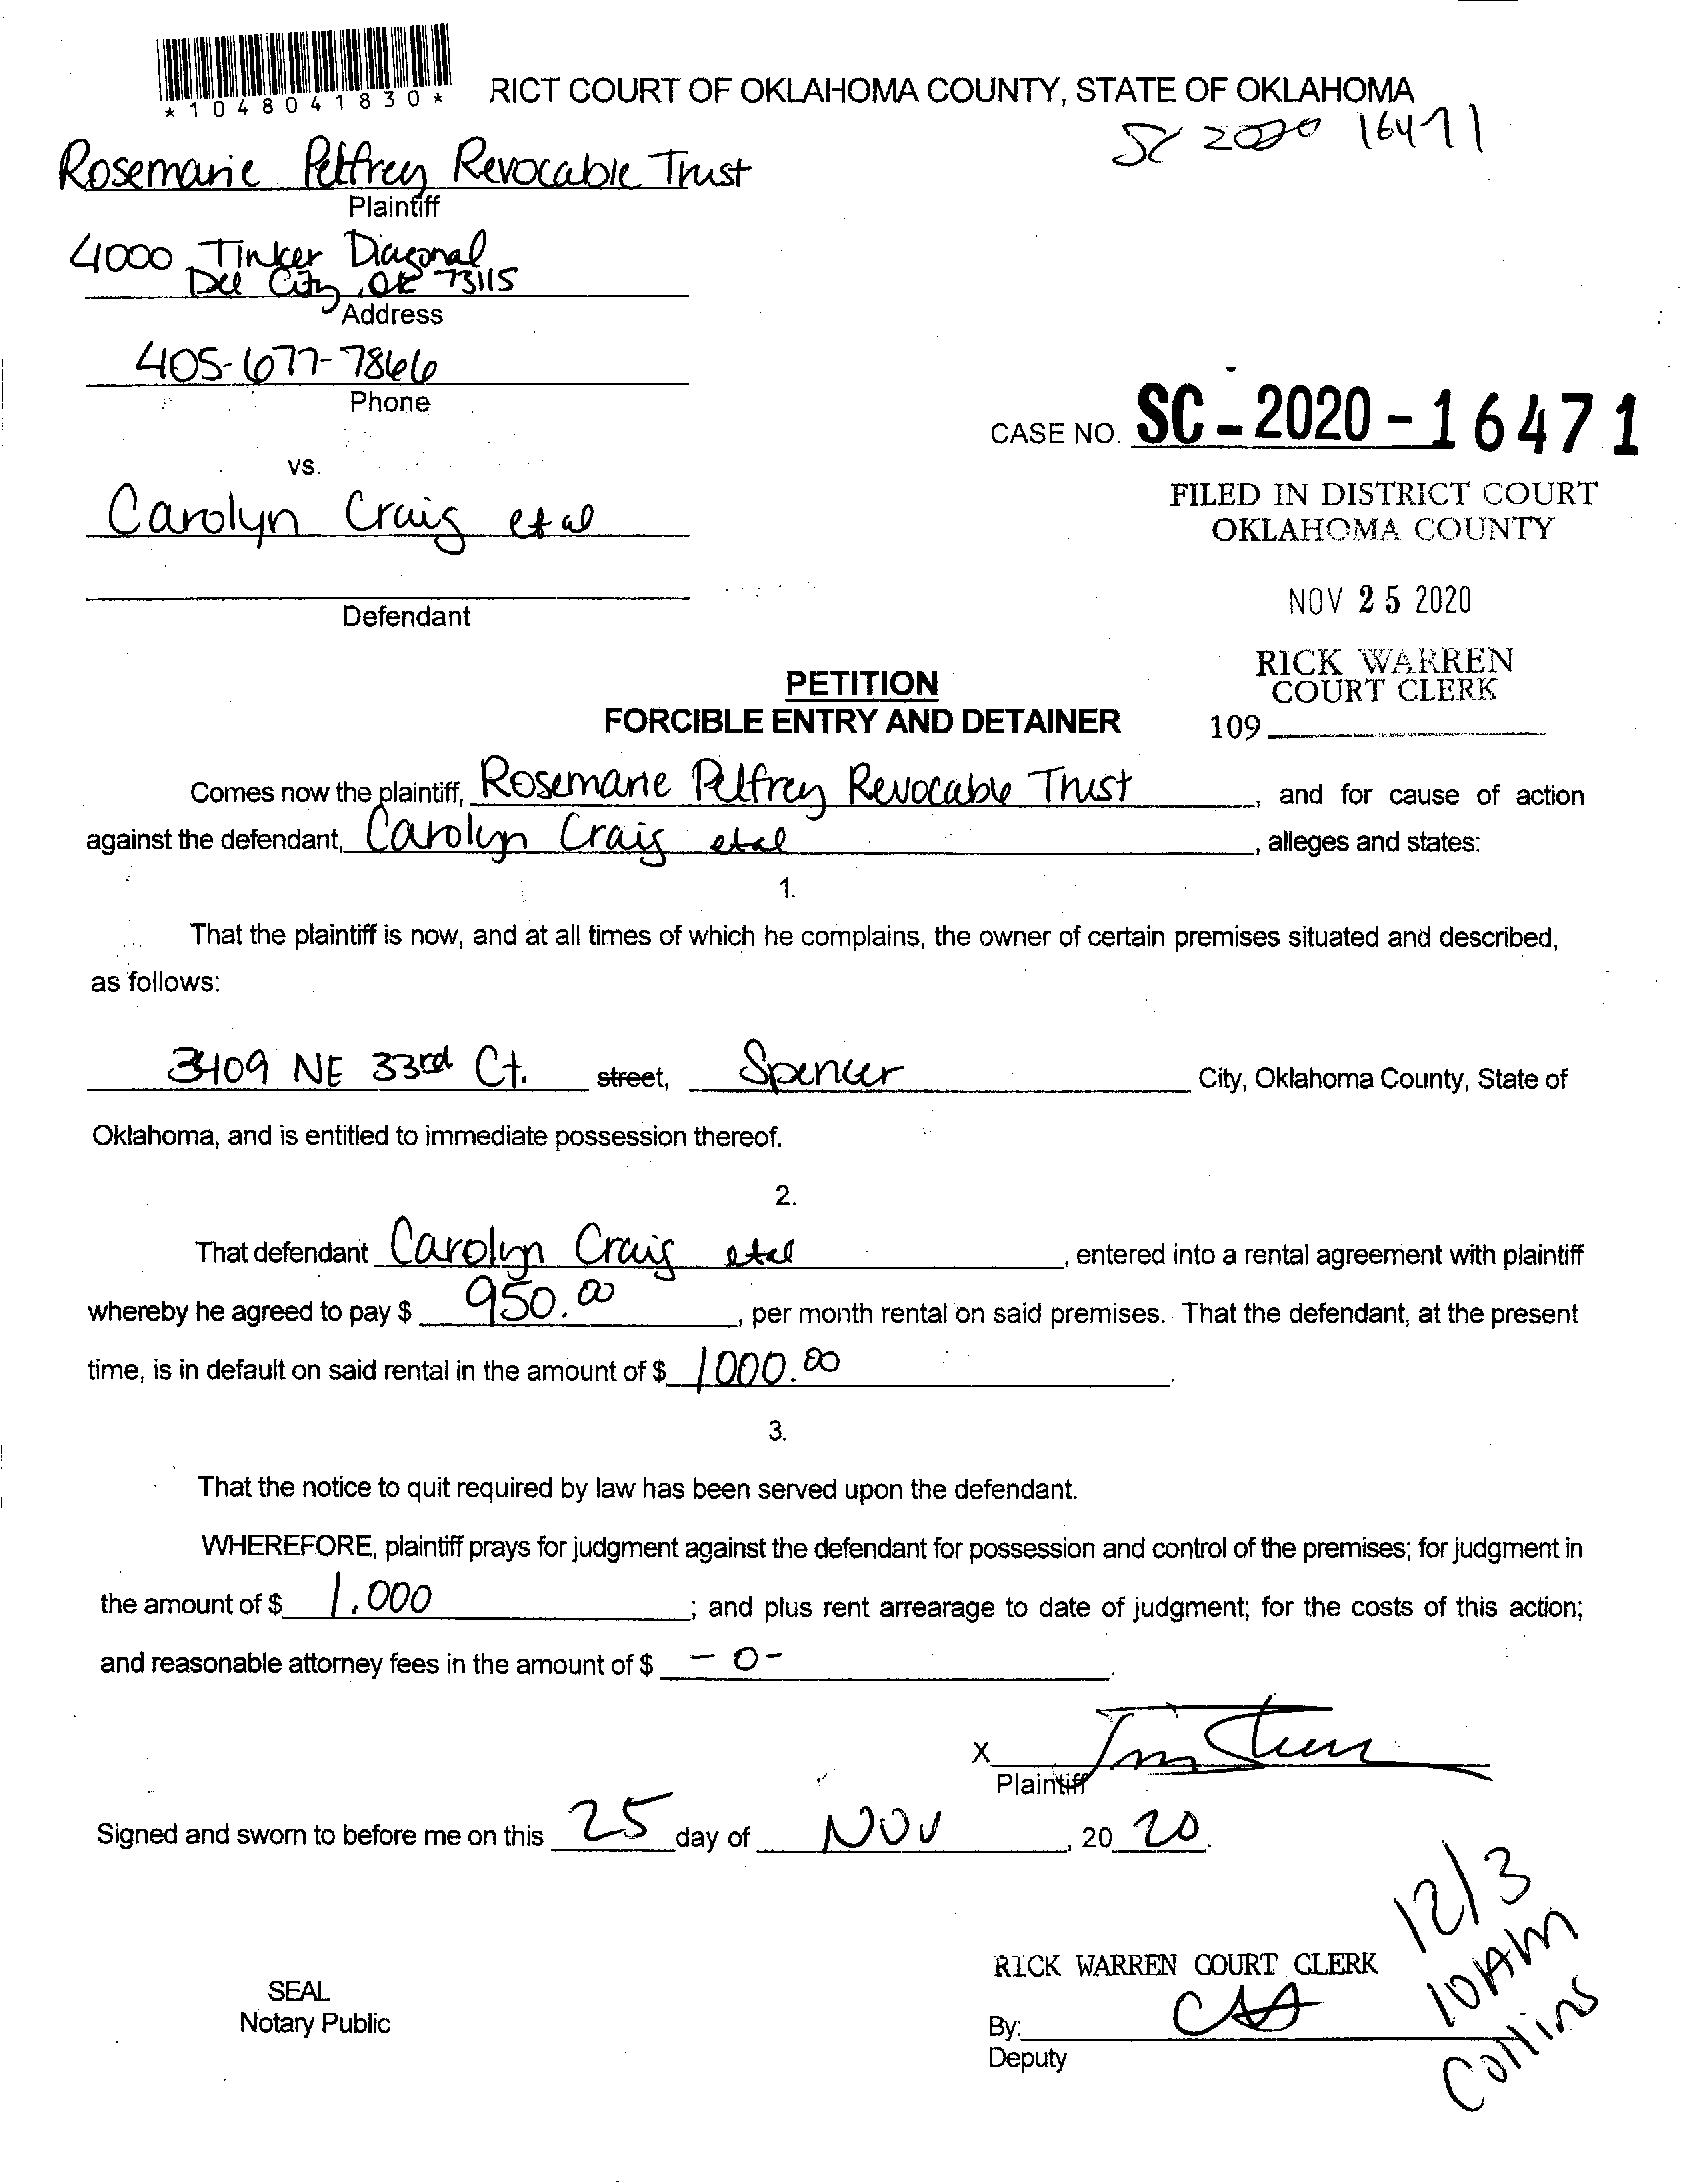 *1048041830*
RICT COURT OF OKLAHOMA COUNTY, STATE OF OKLAHOMA
SC 2020 16471
Rosemarie Pelfrey Revocable Trust
Plaintiff
4000 Tinker Diagonal
Del City, OK 73115
Address
405-677-7866
Phone
CASE NO. SC-2020-16471
vs.
FILED IN DISTRICT COURT
OKLAHOMA COUNTY
Carolyn Craig et al
NOV 25 2020
Defendant
RICK WARREN
COURT CLERK
109
PETITION
FORCIBLE ENTRY AND DETAINER
Comes now the plaintiff, Rosemarie Pelfrey Revocable Trust, and for cause of action
against the defendant, Carolyn Craig et al, alleges and states:
1.
That the plaintiff is now, and at all times of which he complains, the owner of certain premises situated and described,
as follows:
3409 NE 33rd Ct. street, Spencer City, Oklahoma County, State of
Oklahoma, and is entitled to immediate possession thereof.
2.
That defendant Carolyn Craig et al, entered into a rental agreement with plaintiff
whereby he agreed to pay $ 950.00, per month rental on said premises. That the defendant, at the present
time, is in default on said rental in the amount of $ 1000.00.
3.
That the notice to quit required by law has been served upon the defendant.
WHEREFORE, plaintiff prays for judgment against the defendant for possession and control of the premises; for judgment in
the amount of $ 1,000; and plus rent arrearage to date of judgment; for the costs of this action;
and reasonable attorney fees in the amount of $ -0-.
X
Plaintiff
Signed and sworn to before me on this 25 day of NOV, 2020.
12/3
10AM
Collins
RICK WARREN COURT CLERK
SEAL
Notary Public
By:
Deputy